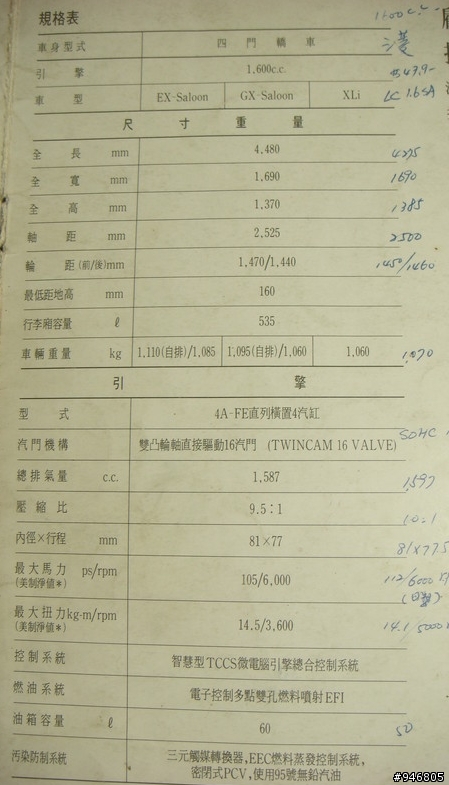 規格表 1600c.c.
車身型式 四門轎車 三菱
引擎 1,600c.c.
車型 EX-Saloon GX-Saloon XLi LC 1.6SA
尺寸重量
全長 mm 4,480 4275
全寬 mm 1,690 1690
全高 mm 1,370 1385
軸距 mm 2,525 2500
輪距(前/後)mm 1,470/1,440 1450/1460
最低距地高 mm 160
行李廂容量 ℓ 535
車輛重量 kg 1,110(自排)/1,085 1,095(自排)/1,060 1,060 1,070
引擎
型式 4A-FE直列橫置4汽缸
汽門機構 雙凸輪軸直接驅動16汽門 (TWINCAM 16 VALVE) SOHC
總排氣量 c.c. 1,587 1597
壓縮比 9.5:1 10:1
內徑×行程 mm 81×77 81×77.5
最大馬力 ps/rpm 105/6,000 112/6000
(美制淨值*)
最大扭力kg-m/rpm 14.5/3,600 14.1 5000
(美制淨值*)
控制系統 智慧型TCCS微電腦引擎總合控制系統
燃油系統 電子控制多點雙孔燃料噴射EFI
油箱容量 ℓ 60 50
汚染防制系統 三元觸媒轉換器,EEC燃料蒸發控制系統,
密閉式PCV,使用95號無鉛汽油
#946805